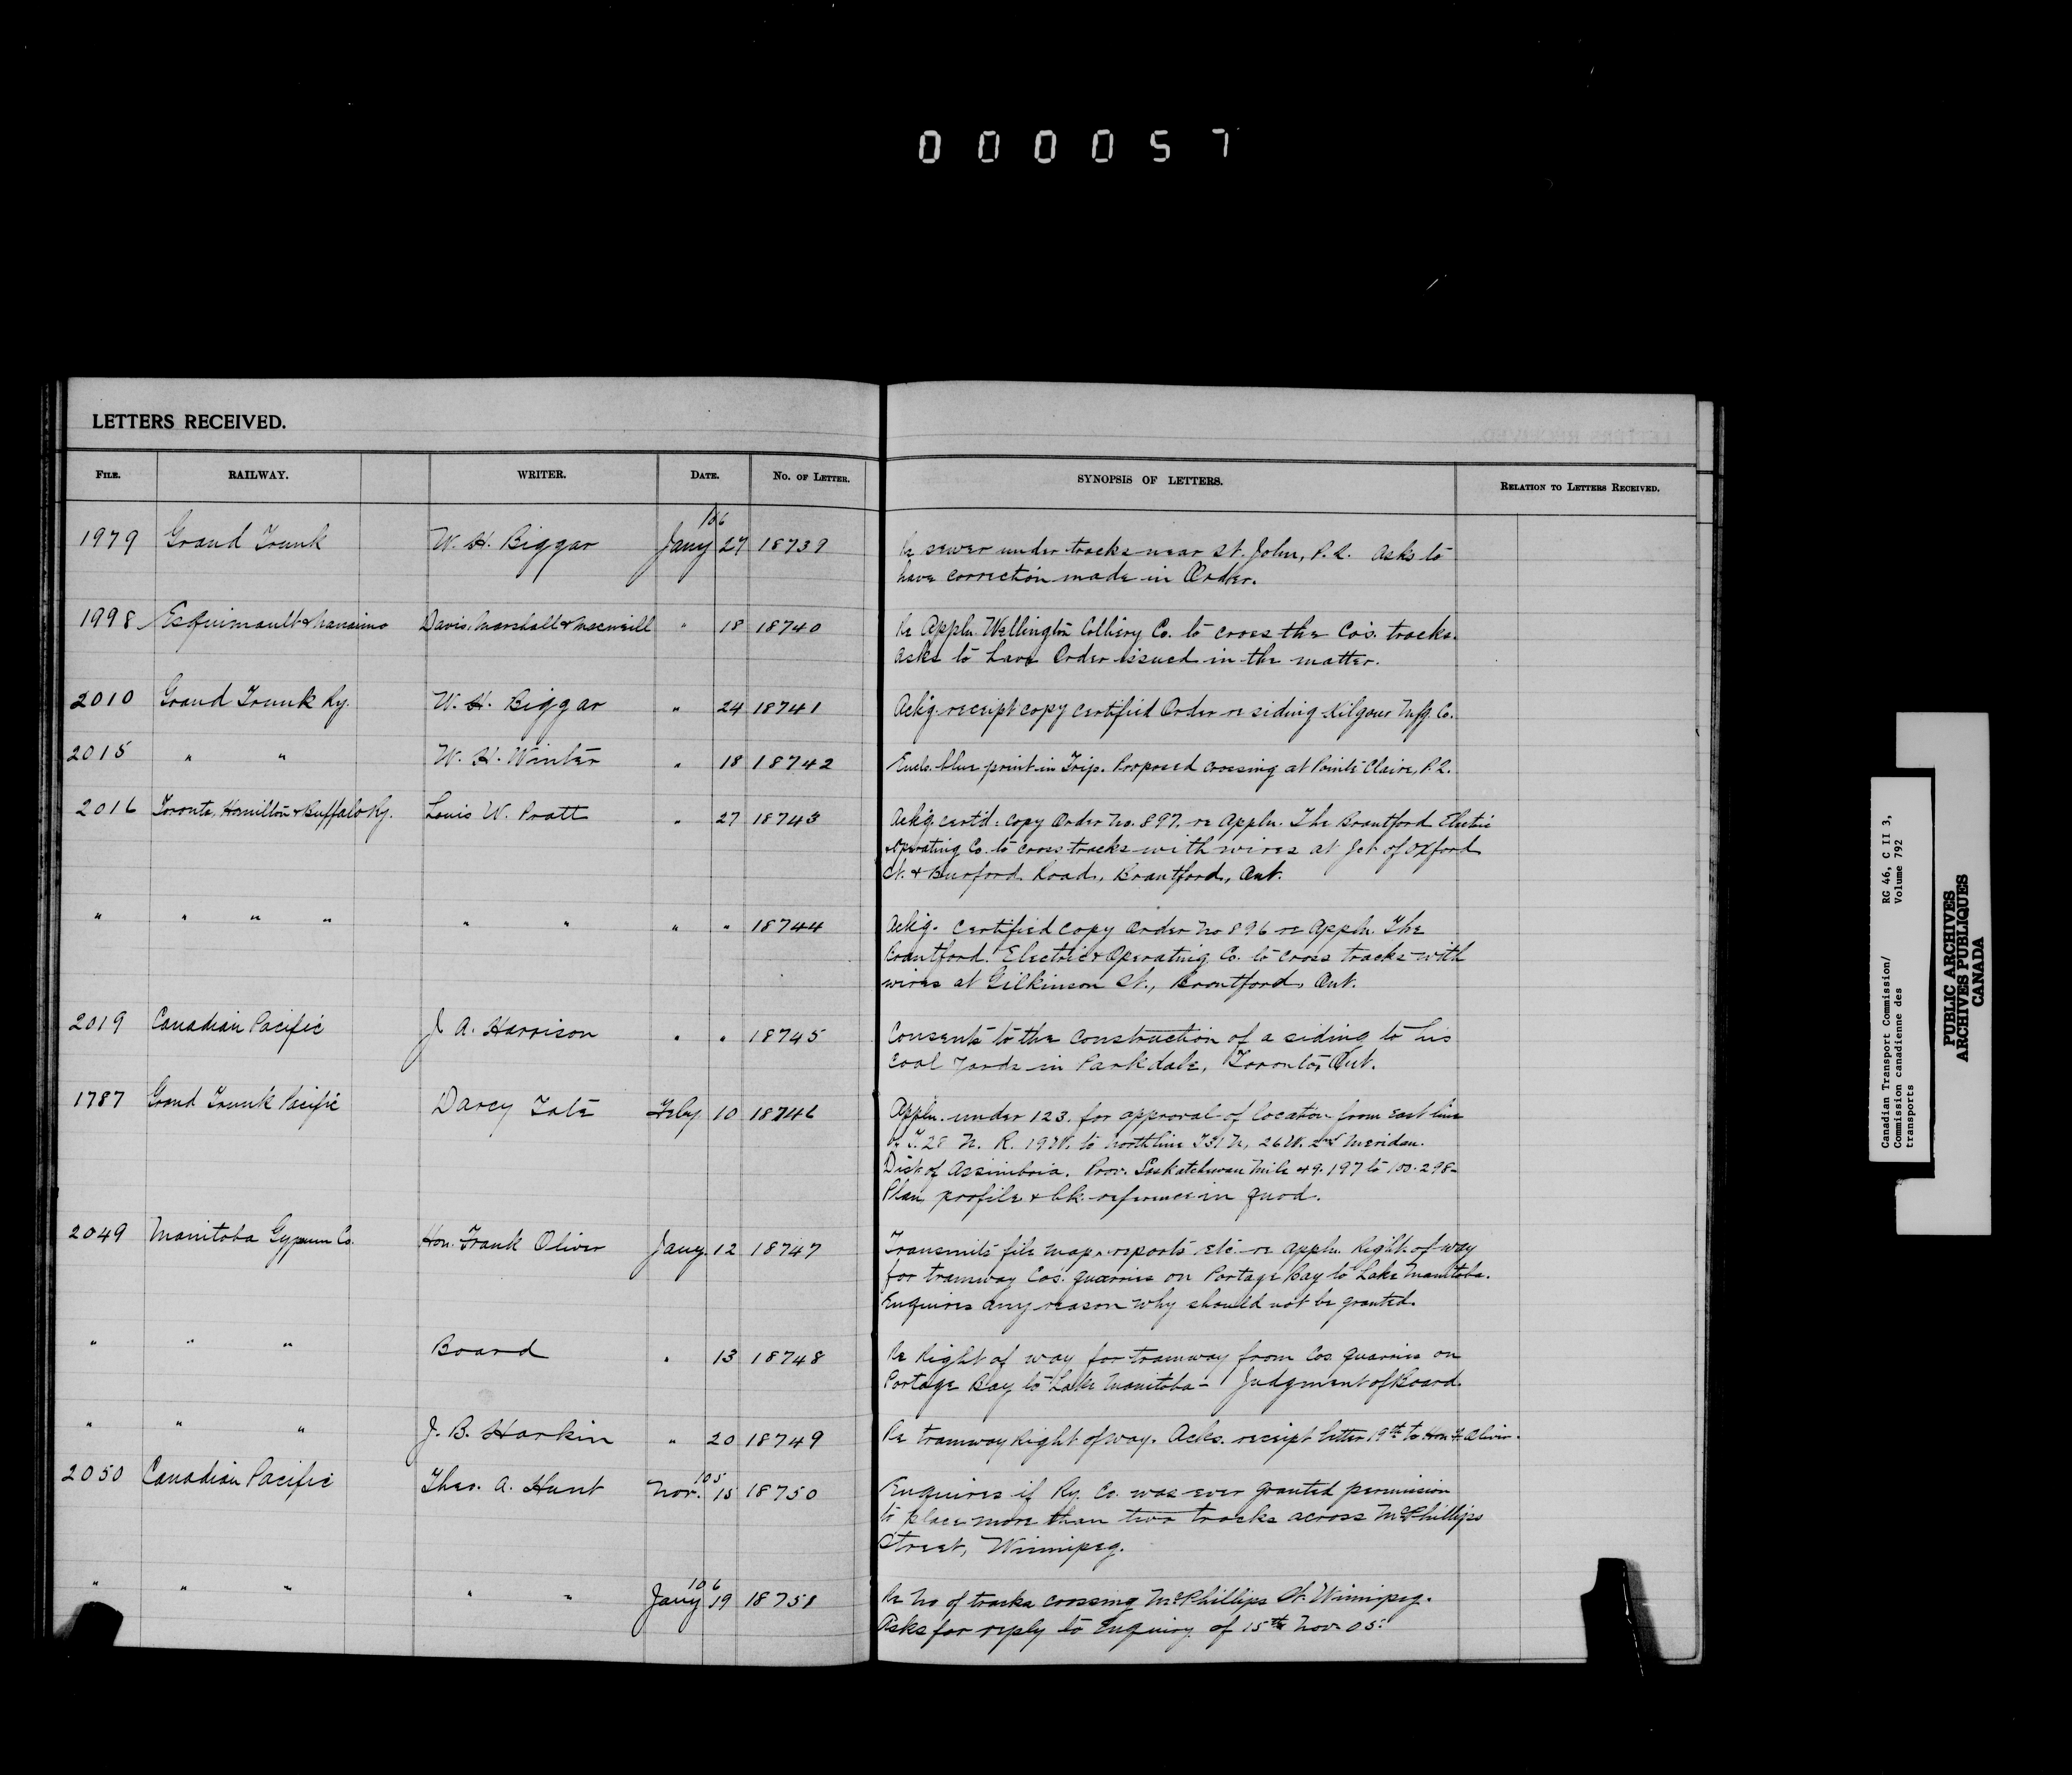 000057
LETTERS RECEIVED.
FILE. RAILWAY. WRITER. DATE. No. OF LETTER. SYNOPSIS OF LETTERS. RELATION TO LETTERS RECEIVED.
1979 Grand Trunk W. H. Biggar Jany 106 27 18739 Re sewer under tracks near St. John, P.Q. Asks to
have correction made in Order.
1998 Esquimault & Nanaimo Davis, Marshall & Macneill " 18 18740 Re Appln. Wellington Colliery Co. to cross the Co's. tracks.
Asks to have Order issued in the matter.
2010 Grand Trunk Ry. W. H. Biggar " 24 18741 Ackg. receipt copy certified Order re siding Kilgour Mfg. Co.
2015 " " W. H. Winter " 18 18742 Encls. blue print in Trip. Proposed crossing at Pointe Claire, P.Q.
2016 Toronto, Hamilton & Buffalo Ry. Louis W. Pratt " 27 18743 Ackg. cert'd. copy Order No. 897. re Appln. The Brantford Electric
& Operating Co. to cross tracks with wires at Jct of Oxford
St. & Burford Road, Brantford, Ont.
" " " " " " " " 18744 Ackg. certified copy Order No 896 re Appln. The
Brantford Electric & Operating Co. to cross tracks with
wires at Gilkinson St., Brantford, Ont.
2019 Canadian Pacific J. A. Harrison " " 18745 Consents to the construction of a siding to his
coal yards in Parkdale, Toronto, Ont.
1787 Grand Trunk Pacific Darcy Tate Feby. 10 18746 Appln. under 123. for approval of location from east line
of T. 28 N. R. 19 W. to north line T31 N, 26 W. 2nd Meridan.
Dist of Assiniboia. Prov. Saskatchewan Mile 49.197 to 100.298-
Plan profile & bk. reference in quad.
2049 Manitoba Gypsum Co. Hon. Frank Oliver Jany. 12 18747 Transmits file map, reports etc. re appln. Right of way
for tramway Cos. quarries on Portage Bay to Lake Manitoba.
Enquires any reason why should not be granted.
" " " Board " 13 18748 Re Right of way for tramway from Cos. quarries on
Portage Bay to Lake Manitoba - Judgment of Board.
" " " J. B. Harkin " 20 18749 Re tramway Right of way. Acks. receipt letter 19th to Hon F. Oliver.
2050 Canadian Pacific Thos. A. Hunt Nov. 105 15 18750 Enquires if Ry. Co. was ever granted permission
to place more than two tracks across McPhillips
Street, Winnipeg.
" " " " " Jany 106 19 18751 Re No of tracks crossing McPhillips St. Winnipeg.
Asks for reply to Enquiry of 15th Nov. 05.
Canadian Transport Commission/ RG 46, C II 3,
Commission canadienne des Volume 792
transports
PUBLIC ARCHIVES
ARCHIVES PUBLIQUES
CANADA